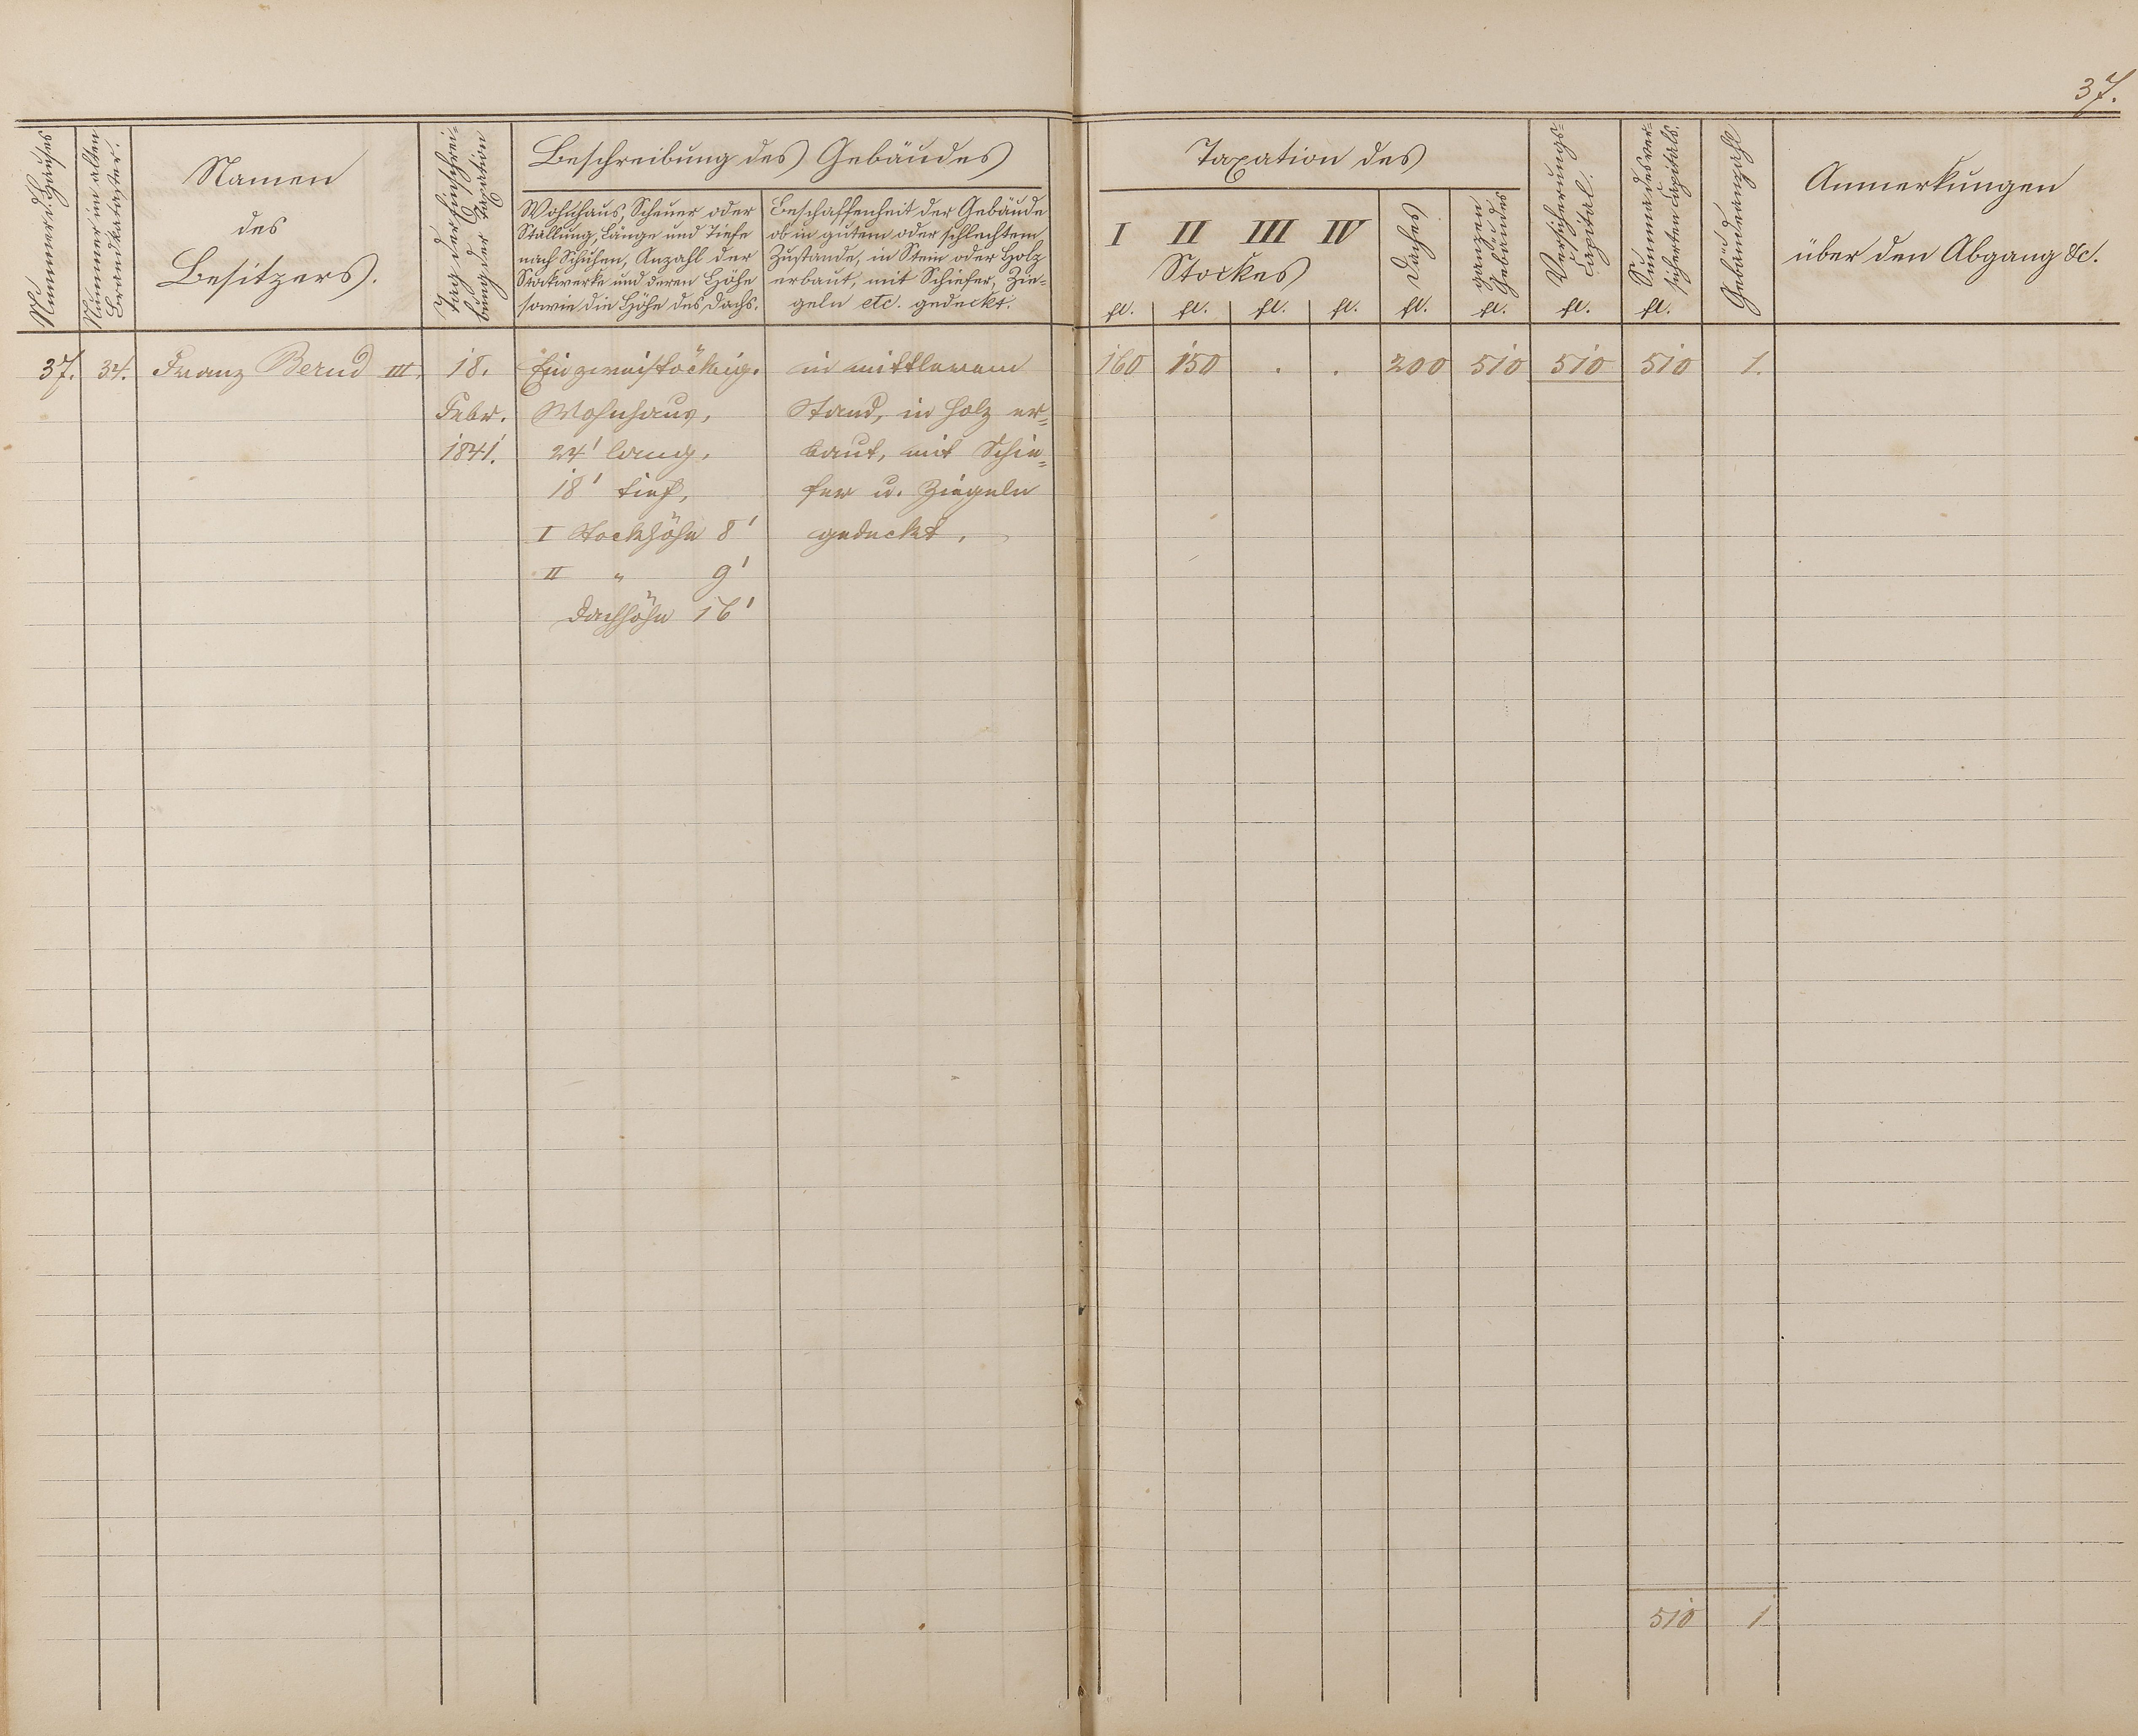 37.
Nummer d. Hauses
Nummer im alten
Brandkataster.
Namen
des
Besitzers.
Tag der Einschrei-
bung der Taxation
Beschreibung des Gebäudes
Wohnhaus, Scheuer oder
Stallung, Länge und Tiefe
nach Schuhen, Anzahl der
Stockwerke und deren Höhe
sowie die Höhe des Dachs.
Beschaffenheit der Gebäude
ob in gutem oder schlechtem
Zustande, in Stein oder Holz
erbaut, mit Schiefer, Zie-
geln etc. gedeckt.
Taxation des
I II III IV
Stockes
Daches
ganzen
Gebäudes
Versicherungs-
Capital.
Summa des ver-
sicherten Capitals.
Gebäudeanzahl
Anmerkungen
über den Abgang &c.
fl. fl. fl. fl. fl. fl. fl. fl.
37. 34. Franz Bernd III. 18. Ein zweistöckig. in mittlerem 160 150 . . 200 510 510 510 1.
Febr. Wohnhaus, Stand, in Holz er=
1841. 24' lang, baut, mit Schie=
18' tief, fer u. Ziegeln
I Stockhöhe 8' gedeckt.
II " 9'
Dachhöhe 16'
510 1